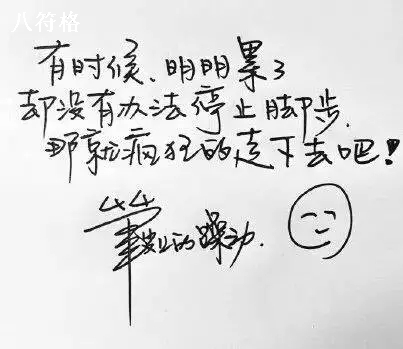 八符格
有时候、明明累了
却没有办法停止脚步.
那就疯狂的走下去吧!
的躁动.